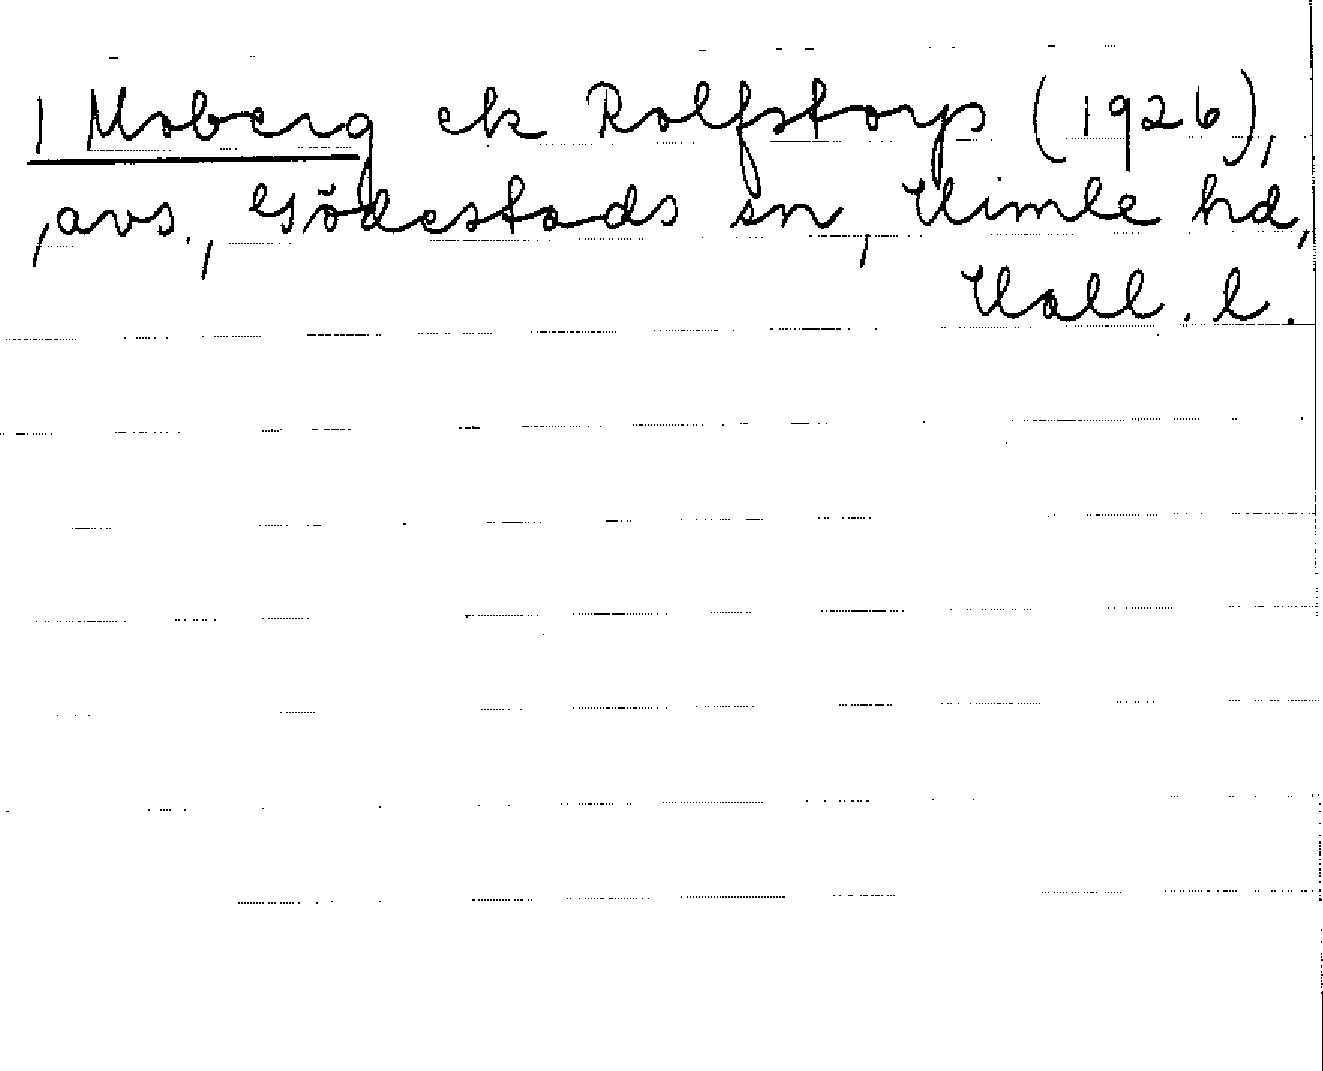 1 Moberg ek Rolfstorps (1926),
, avs., Gödestads sn, Himle hd,
Hall. l.